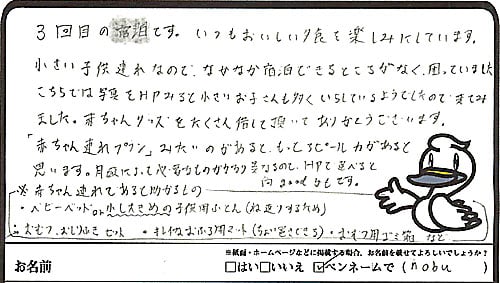 3回目の宿泊です。いつもおいしい夕食を楽しみにしています。
小さい子供連れなので、なかなか宿泊できるところがなく、困っていました
こちらでは写真をHPみると小さいお子さんも多くいらしているようでしたので来てみ
ました。赤ちゃんグッズをたくさん借して頂いてありがとうございます。
「赤ちゃん連れプラン」みたいのがあると、もっとアピール力があると
思います。月齢によって必要なものがかなり異なるので、HPで選べると
尚goodかもです。
※赤ちゃん連れであると助かるもの
・ベビーベッドor小し大きめの子供用ふとん(ね返りするため)
・おむつ、おしりふきセット ・キレイなおふろ用マット(ちょい置きできる) ・おむつ用ゴミ箱 など
※紙面・ホームページなどに掲載する場合、お名前を載せてよろしいでしょうか?
お名前 □はい□いいえ ☑ペンネームで(nobu)